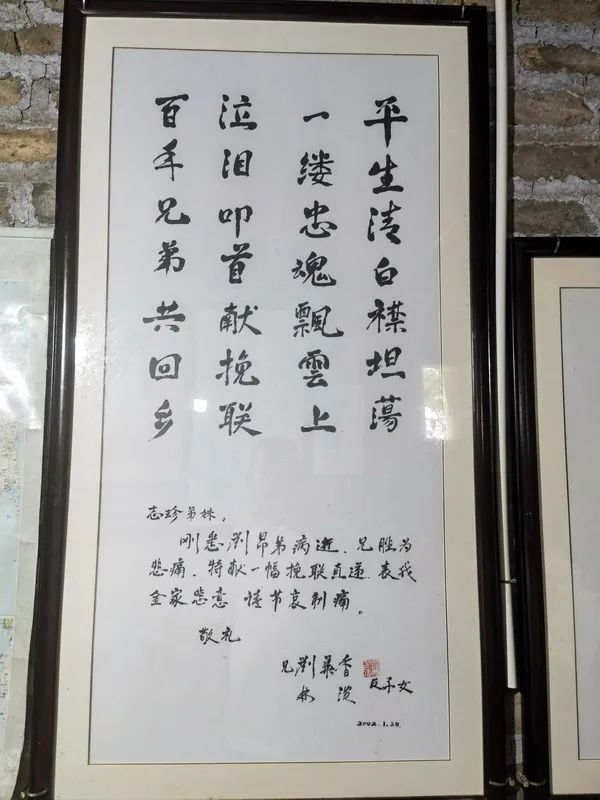 平生清白襟坦蕩
一缕忠魂飄雲上
泣泪叩首献挽联
百年兄弟共回乡
志珍弟妹，
刚悉劉昂弟病逝、兄胜为
悲痛．特献一幅挽联直递．表我
全家悲意 情节哀别痛。
敬礼
兄劉香
林
及子女
2002.1.20.